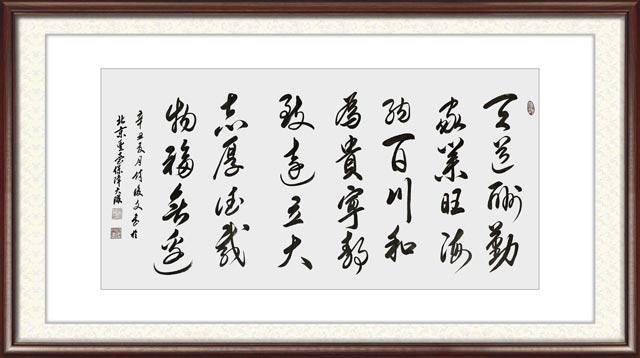 天道酬勤
家業旺海
納百川和
為貴寧靜
致遠立大
志厚德載
物福無邊
辛丑辰月付俊文書於
北京